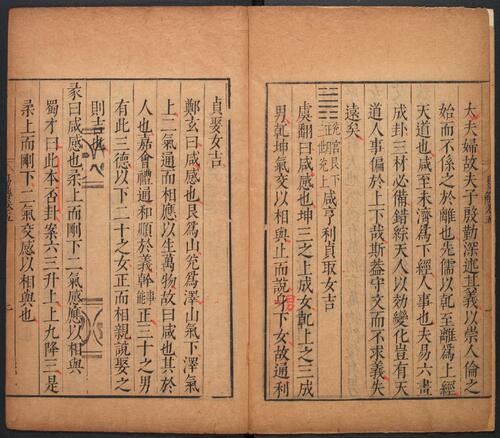 大夫婦故夫子殷勤深述其義以崇人倫之
始而不係之於離也先儒以乾至離爲上經
天道也咸至未濟爲下經人事也夫易六畫
成卦三材必備錯綜天人以効變化豈有天
道人事偏於上下哉斯葢守文而不求義失
遠矣
兊宮艮下
三世兊上
咸亨利貞取女吉
虞翻曰咸感也坤三之上成女乾上之三成
男乾坤氣交以相與止而說男下女故通利
貞娶女吉
鄭玄曰咸感也艮爲山兊爲澤山氣下澤氣
上二氣通而相應以生萬物故曰咸也其於
人也嘉會禮通和順於義幹事能正三十之男
有此三德以下二十之女正而相親說娶之
則吉也
彖曰咸感也柔上而剛下二氣感應以相與
蜀才曰此本否卦案六三升上上九降三是
柔上而剛下二氣交感以相與也